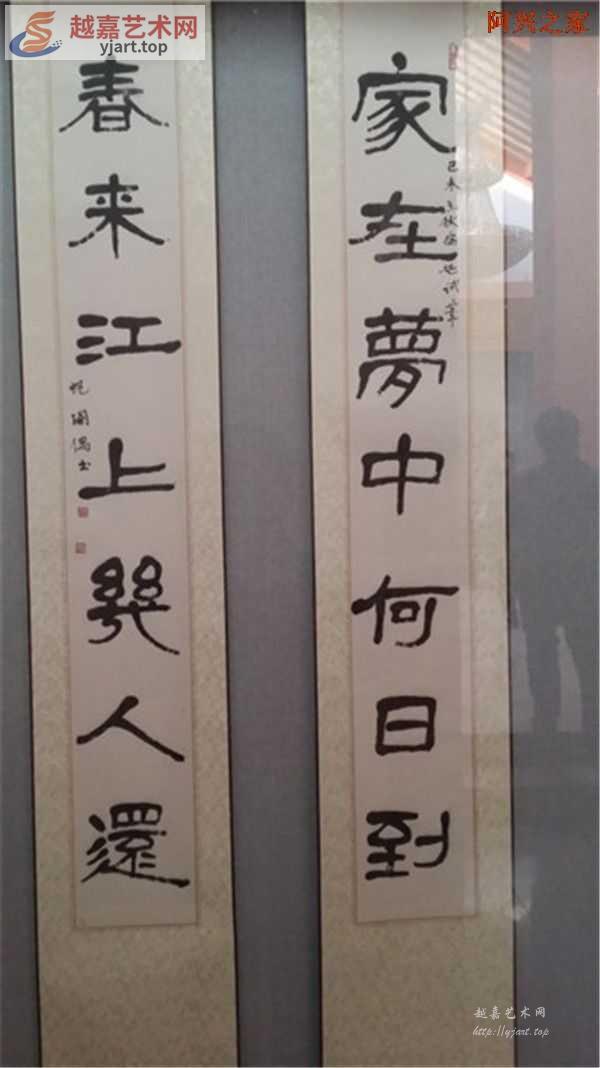 越嘉艺术网
yjart.top
阿兴之家
家在夢中何日到
春来江上幾人還
越嘉艺术网
http://yjart.top